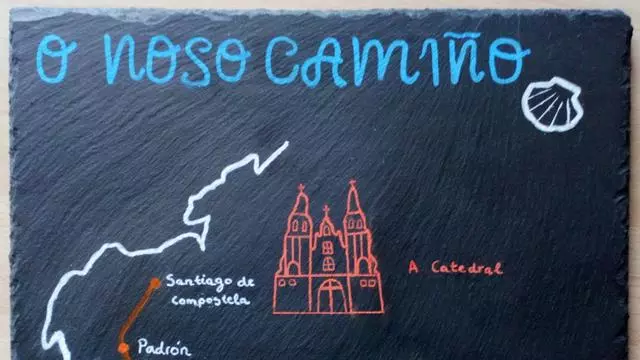 O NOSO CAMIÑO
A Catedral
Santiago de
compostela
Padrón